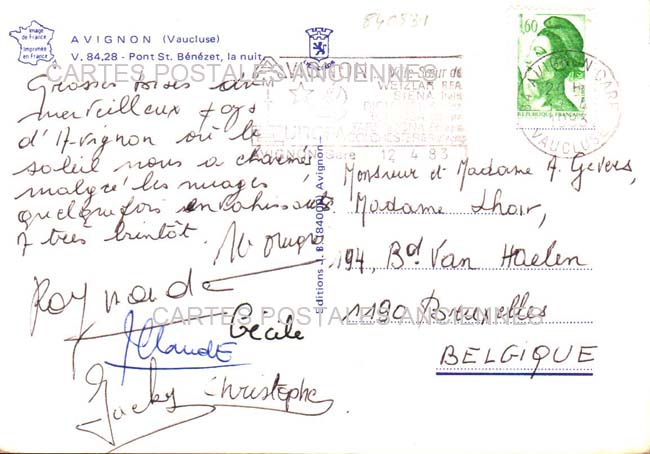 840531
Image de France
Imprimée en France
AVIGNON (Vaucluse)
V. 84.28 - Pont St. Bénézet, la nuit
CARTES POSTALES ANCIENNES
AVIGNON
WETZLAR RFA
SIENA
AVIGNON Gare 12 4 83
1,60
REPUBLIQUE FRANCAISE
AVIGNON GARE
VAUCLUSE
Grosses bises du
merveilleux pays
d'Avignon où le
soleil nous a charmés
malgré les nuages
quelquefois envahissants
A très bientôt.
Raymonde
Cécile
Claude
Jacky Christophe
Editions J. B. 84000 Avignon
Monsieur et Madame A. Gevers,
Madame Lhoir,
194, Bd Van Haelen
1190 Bruxelles
BELGIQUE
CARTES POSTALES ANCIENNES